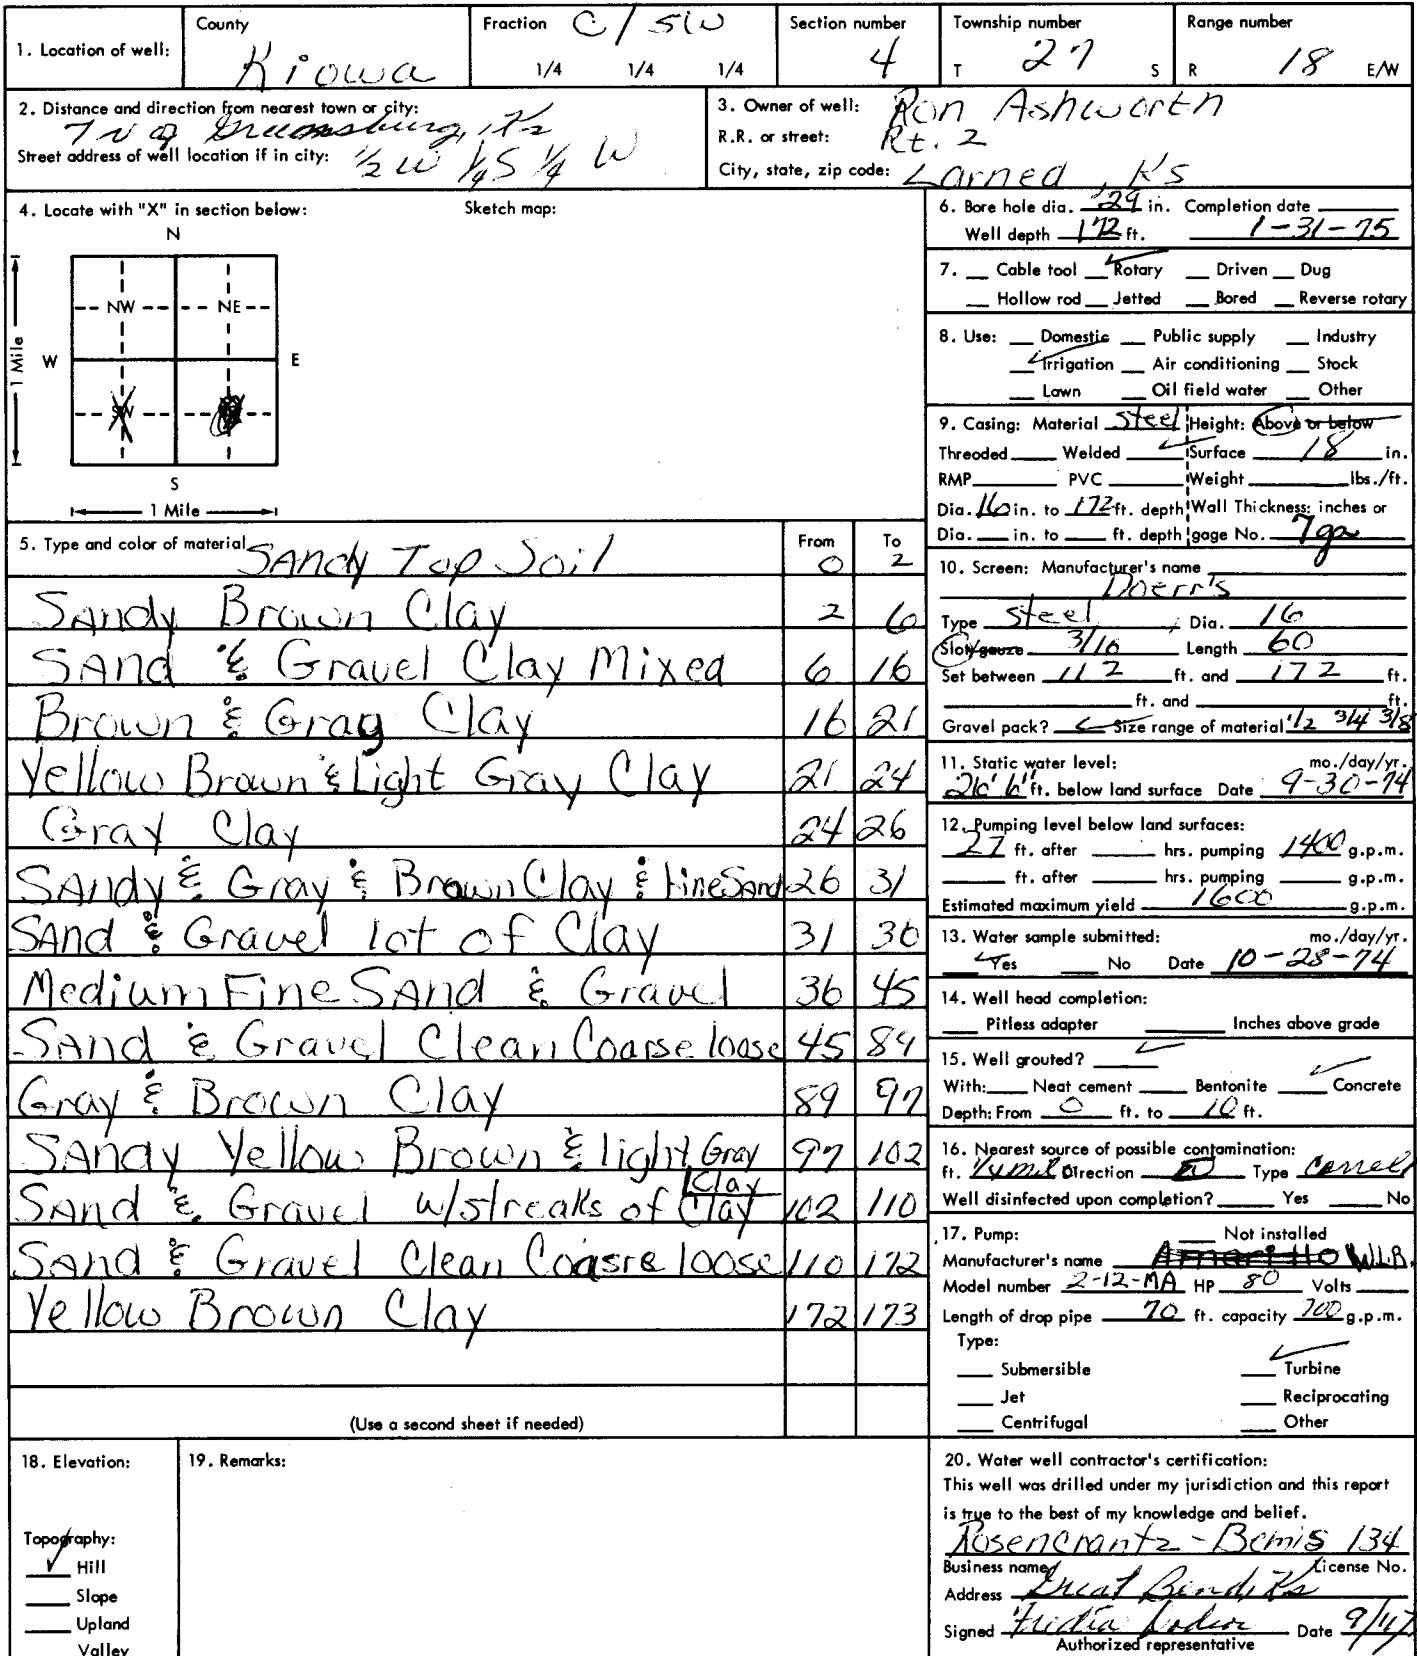 County
Fraction C/SW
Section number
Township number
Range number
1. Location of well:
Kiowa
1/4 1/4 1/4
4
T 27 S
R 18 E/W
2. Distance and direction from nearest town or city:
7 N of Greensburg, Ks
Street address of well location if in city: 1/2 W 1/4 S 1/4 W
3. Owner of well: Ron Ashworth
R.R. or street: Rt. 2
City, state, zip code: Larned, Ks
4. Locate with "X" in section below:
Sketch map:
N
NW NE
W E
1 Mile
SW
S
1 Mile
5. Type and color of material From To
Sandy Top Soil 0 2
Sandy Brown Clay 2 6
Sand & Gravel Clay Mixed 6 16
Brown & Gray Clay 16 21
Yellow Brown & Light Gray Clay 21 24
Gray Clay 24 26
Sandy & Gray & Brown Clay & Fine Sand 26 31
Sand & Gravel lot of Clay 31 36
Medium Fine Sand & Gravel 36 45
Sand & Gravel Clean Coarse loose 45 89
Gray & Brown Clay 89 97
Sandy Yellow Brown & light Gray 97 102
Clay
Sand & Gravel w/streaks of Clay 102 110
Sand & Gravel Clean Coasre loose 110 172
Yellow Brown Clay 172 173
(Use a second sheet if needed)
6. Bore hole dia. 29 in. Completion date
Well depth 172 ft. 1-31-75
7. Cable tool ✓ Rotary Driven Dug
Hollow rod Jetted Bored Reverse rotary
8. Use: Domestic Public supply Industry
✓ Irrigation Air conditioning Stock
Lawn Oil field water Other
9. Casing: Material Steel Height: Above or below
Threaded Welded ✓ Surface 18 in.
RMP PVC Weight lbs./ft.
Dia. 16 in. to 172 ft. depth Wall Thickness: inches or
Dia. in. to ft. depth gage No. 7ga
10. Screen: Manufacturer's name
Doerr's
Type Steel Dia. 16
Slot/gauze 3/16 Length 60
Set between 112 ft. and 172 ft.
ft. and ft.
Gravel pack? ✓ Size range of material 1/2 3/4 3/8
11. Static water level: mo./day/yr.
ft. below land surface Date 9-30-74
12. Pumping level below land surfaces:
27 ft. after hrs. pumping 1400 g.p.m.
ft. after hrs. pumping g.p.m.
Estimated maximum yield 1600 g.p.m.
13. Water sample submitted: mo./day/yr.
✓ Yes No Date 10-28-74
14. Well head completion:
Pitless adapter Inches above grade
15. Well grouted? ✓
With: Neat cement Bentonite ✓ Concrete
Depth: From 0 ft. to 10 ft.
16. Nearest source of possible contamination:
ft. 1/4 mile Direction Type
Well disinfected upon completion? Yes No
17. Pump: Not installed
Manufacturer's name Amarillo W.L.R.
Model number 2-12-MA HP 80 Volts
Length of drop pipe 70 ft. capacity 700 g.p.m.
Type:
Submersible ✓ Turbine
Jet Reciprocating
Centrifugal Other
18. Elevation:
19. Remarks:
Topography:
✓ Hill
Slope
Upland
Valley
20. Water well contractor's certification:
This well was drilled under my jurisdiction and this report
is true to the best of my knowledge and belief.
Rosencrantz-Bemis 134
Business name License No.
Address Great Bend, Ks
Signed Date
Authorized representative